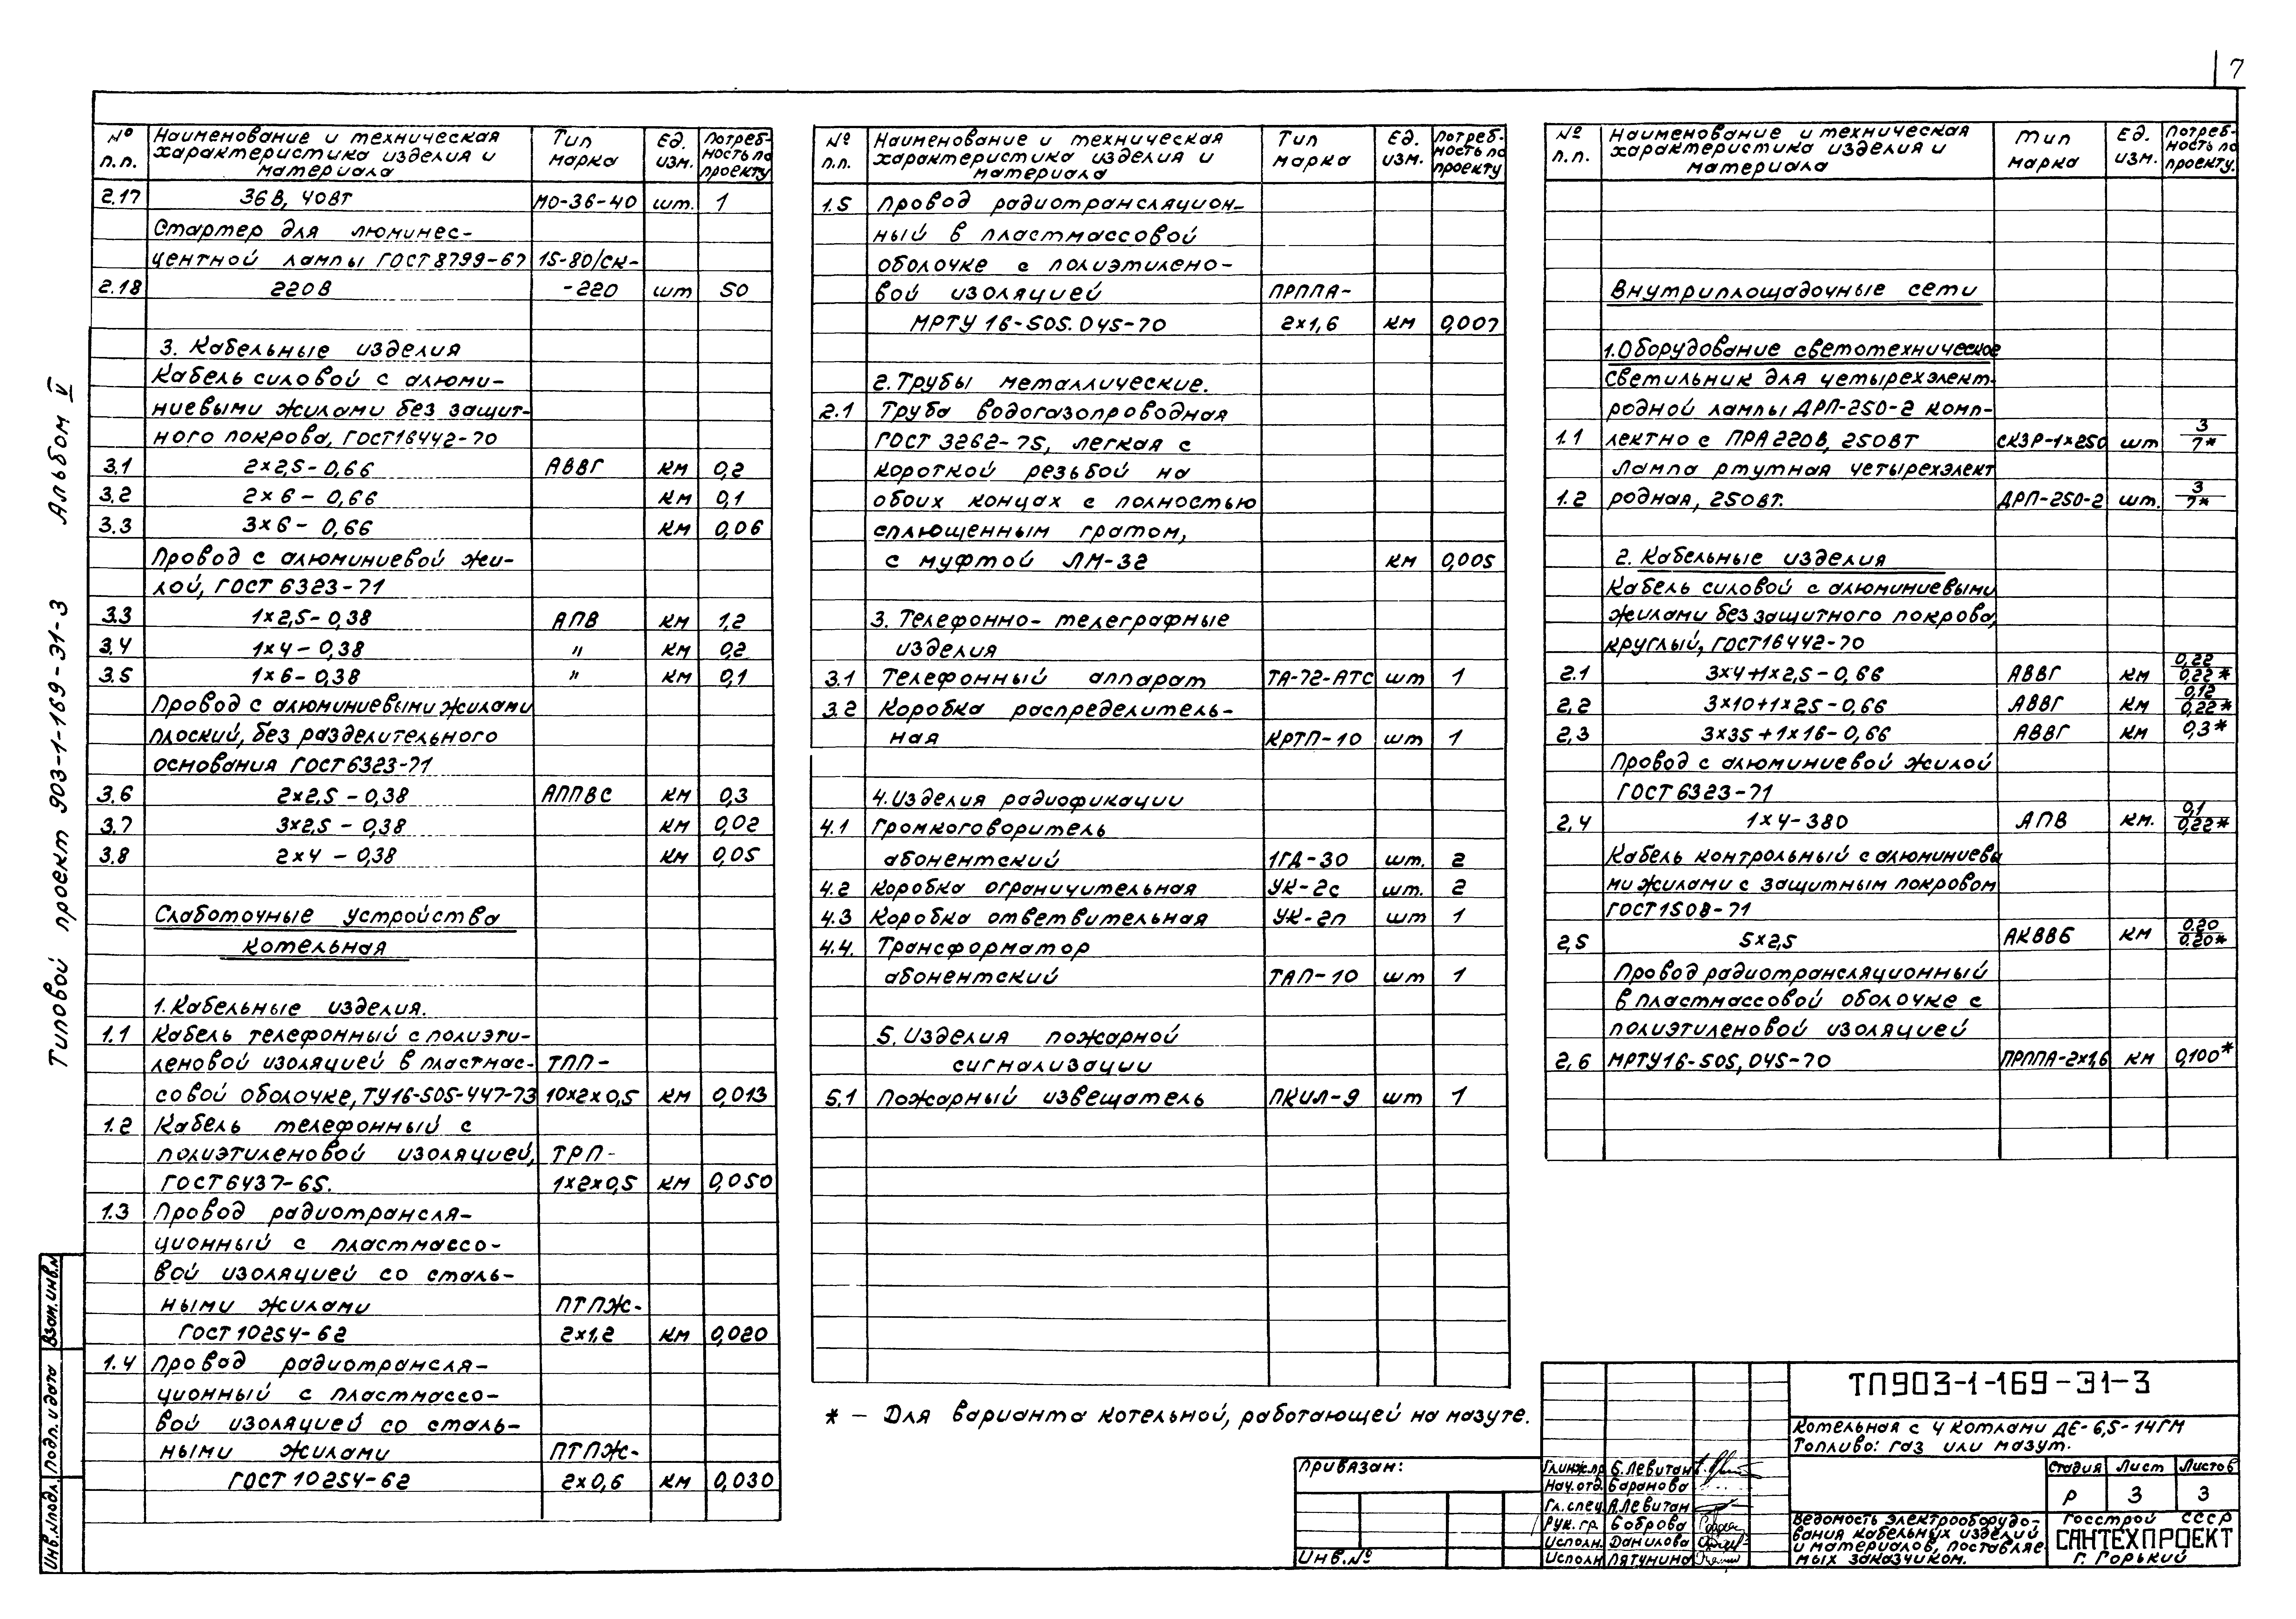 7
Типовой проект 903-1-169-Э1-3 Альбом V
№ п.п. Наименование и техническая характеристика изделия и материала Тип марка Ед. изм. Потреб-ность по проекту
2.17 36В, 40Вт МО-36-40 шт. 1
Стартер для люминес-
центной лампы ГОСТ 8799-67 15-80/СК-
2.18 220В -220 шт 50
3. Кабельные изделия
Кабель силовой с алюми-
ниевыми жилами без защит-
ного покрова, ГОСТ16442-70
3.1 2×2,5-0,66 АВВГ км 0,2
3.2 2×6-0,66 км 0,1
3.3 3×6-0,66 км 0,06
Провод с алюминиевой жи-
лой, ГОСТ 6323-71
3.3 1×2,5-0,38 АПВ км 1,2
3.4 1×4-0,38 " км 0,2
3.5 1×6-0,38 " км 0,1
Провод с алюминиевыми жилами
плоский, без разделительного
основания ГОСТ6323-71
3.6 2×2,5-0,38 АППВС км 0,3
3.7 3×2,5-0,38 км 0,02
3.8 2×4-0,38 км 0,05
Слаботочные устройства
котельная
1. Кабельные изделия.
1.1 Кабель телефонный с полиэти-
леновой изоляцией в пластмас- ТПП-
совой оболочке, ТУ16-505-447-73 10×2×0,5 км 0,013
1.2 Кабель телефонный с
полиэтиленовой изоляцией, ТРП-
ГОСТ6437-65. 1×2×0,5 км 0,050
1.3 Провод радиотрансля-
ционный с пластмассо-
вой изоляцией со сталь-
ными жилами ПТПЖ-
ГОСТ 10254-62 2×1,2 км 0,020
1.4 Провод радиотрансля-
ционный с пластмассо-
вой изоляцией со сталь-
ными жилами ПТПЖ-
ГОСТ 10254-62 2×0,6 км 0,030
№ п.п. Наименование и техническая характеристика изделия и материала Тип марка Ед. изм. Потреб-ность по проекту
1.5 Провод радиотрансляцион-
ный в пластмассовой
оболочке с полиэтилено-
вой изоляцией ПРППА-
МРТУ 16-505.045-70 2×1,6 км 0,007
2. Трубы металлические.
2.1 Труба водогазопроводная
ГОСТ 3262-75, легкая с
короткой резьбой на
обоих концах с полностью
сплющенным гратом,
с муфтой ЛМ-32 км 0,005
3. Телефонно-телеграфные
изделия
3.1 Телефонный аппарат ТА-72-АТС шт 1
3.2 Коробка распределитель-
ная КРТП-10 шт 1
4. Изделия радиофикации
4.1 Громкоговоритель
абонентский 1ГД-30 шт. 2
4.2 Коробка ограничительная УК-2с шт. 2
4.3 Коробка ответвительная УК-2п шт 1
4.4. Трансформатор
абонентский ТАП-10 шт 1
5. Изделия пожарной
сигнализации
5.1 Пожарный извещатель ПКИЛ-9 шт 1
* - Для варианта котельной, работающей на мазуте.
№ п.п. Наименование и техническая характеристика изделия и материала Тип марка Ед. изм. Потреб-ность по проекту.
Внутриплощадочные сети
1. Оборудование светотехническое
Светильник для четырехэлект-
родной лампы ДРЛ-250-2 комп-
1.1 лектно с ПРА 220В, 250Вт СКЗР-1×250 шт 3/7*
Лампа ртутная четырехэлект
1.2 родная, 250Вт. ДРЛ-250-2 шт. 3/7*
2. Кабельные изделия
Кабель силовой с алюминиевыми
жилами без защитного покрова,
круглый, ГОСТ16442-70
2.1 3×4+1×2,5-0,66 АВВГ км 0,22/0,22*
2,2 3×10+1×25-0,66 АВВГ км 0,12/0,22*
2,3 3×35+1×16-0,66 АВВГ км 0,3*
Провод с алюминиевой жилой
ГОСТ6323-71
2,4 1×4-380 АПВ км. 0,1/0,22*
Кабель контрольный с алюминиевы
ми жилами с защитным покровом
ГОСТ1508-71
2,5 5×2,5 АКВВБ км 0.20/0.20*
Провод радиотрансляционный
в пластмассовой оболочке с
полиэтиленовой изоляцией
2,6 МРТУ16-505,045-70 ПРППА-2×1,6 км 0,100*
Инв.№подл. Подп. и дата Взам.инв.№
Привязан:
Инв.№
Гл.инж.пр Б.Левитан
Нач.отд. Баранова
Гл.спец. А.Левитан
Рук.гр. Боброва
Исполн. Данилова
Исполн Лятунина
ТП903-1-169-Э1-3
Котельная с 4 котлами ДЕ-6,5-14ГМ
Топливо: газ или мазут.
Стадия Лист Листов
Р 3 3
Ведомость электрооборудо-
вания кабельных изделий
и материалов, поставляе
мых заказчиком.
Госстрой СССР
САНТЕХПРОЕКТ
г. Горький